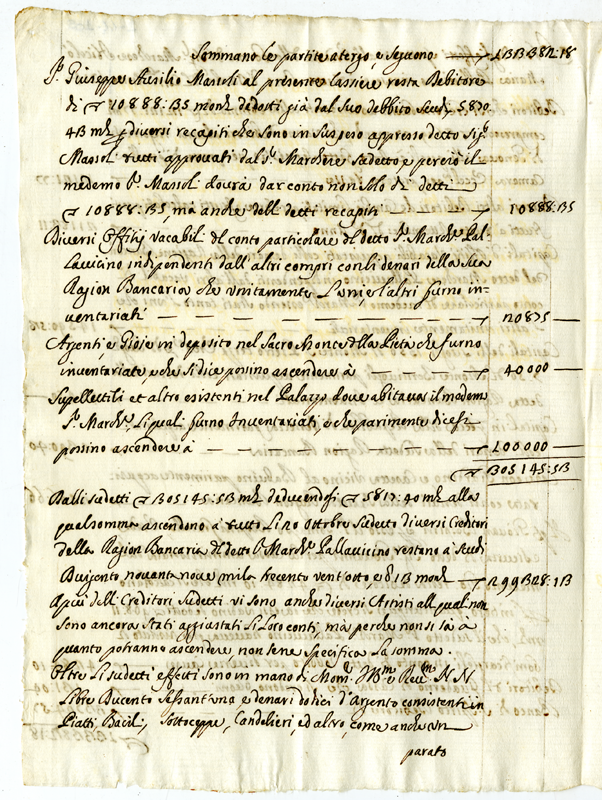 Sommano le partite atergo, e seguono — 133382:18
S.r Giuseppe Ausilio Massoli al presente Cassiere resta Debitore
di ▽ 10888:35 mon.ta dedotti già dal suo debbito scudi 5870
43 m.ta p diversi recapiti che sono in suspeso appresso detto Sig.r
Massoli tutti approvati dal S.r Marchese sudetto, e perciò il
medemo S.r Massoli dovrà dar conto non solo di detti
▽ 10888:35, mà anche delli detti recapiti — 10888:35
Diversi Offitij vacabili del conto particolare del detto S.r March.e Pal-
lavicino indipendenti dall'altri compri con li denari della sua
Ragion Bancaria, che unitamente l'uni, e l'altri furno in-
ventariati — 20875 —
Argenti, e Gioie in deposito nel Sacro Monte della Pietà che furno
inventariate, e che si dice possino ascendere à — 40000 —
Suppellettili et altro esistenti nel Palazzo dove abitava il medemo
S.r March.e, li quali furno Inventariati, e che parimente dicesi
possino ascendere à — 100000 —
▽ 305145:53
Dalli sudetti ▽ 305145:53 m.ta deducendosi ▽ 5817:40 m.ta alla
qual somma ascendono à tutto li 20 Ottobre sudetto diversi Creditori
della Ragion Bancaria del detto S.r March.e Pallavicino restano à scudi
Duigento, novanta nove mila trecento vent'otto, e d 13 mon.ta — 299328:13
A più delli Creditori sudetti vi sono anche diversi Artisti alli quali non
sono ancora stati aggiustati li loro conti, mà perche non si sà à
quanto potranno ascendere, non se ne specifica la somma.
Oltre li sudetti effetti sono in mano di Mons.r Ill.mo e Rev.mo NN
Libre Ducento sessant'una, e denari dodici d'Argento consistenti in
Piatti, Bacili, Sottocoppe, Candelieri, ed altro, come anche un
parato